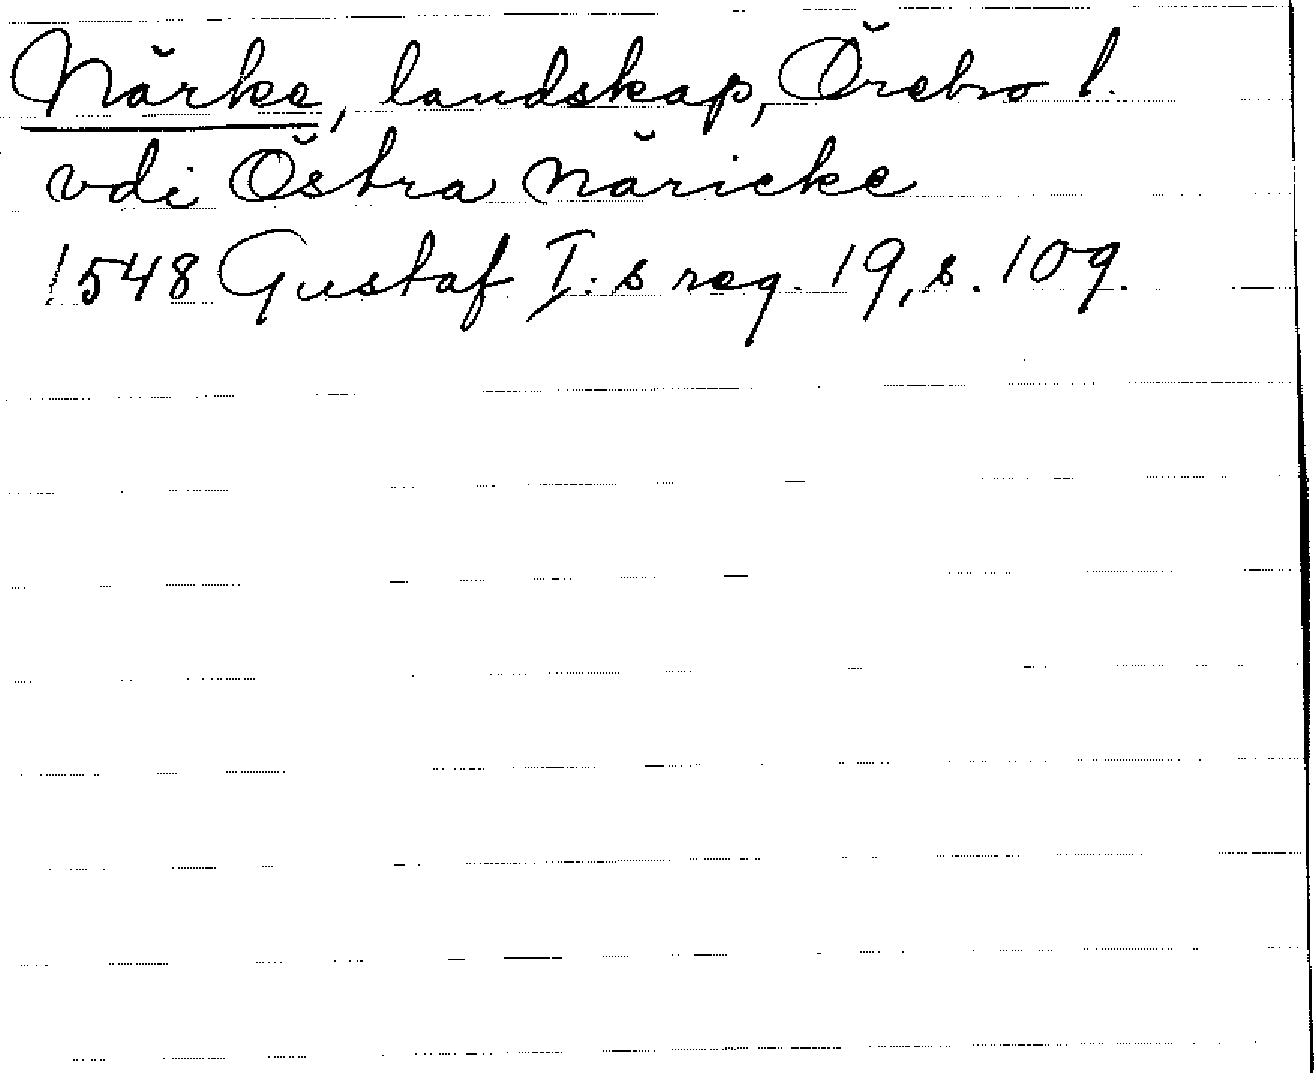 Närke, landskap, Örebro l.
vdi Östra Näricke
1548 Gustaf I:s reg. 19, s. 109.